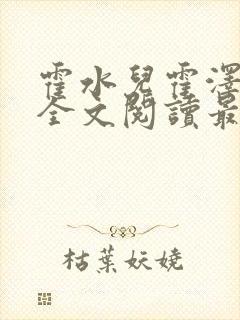 霍水兒霍澤
全文閱讀最
枯葉妖嬈